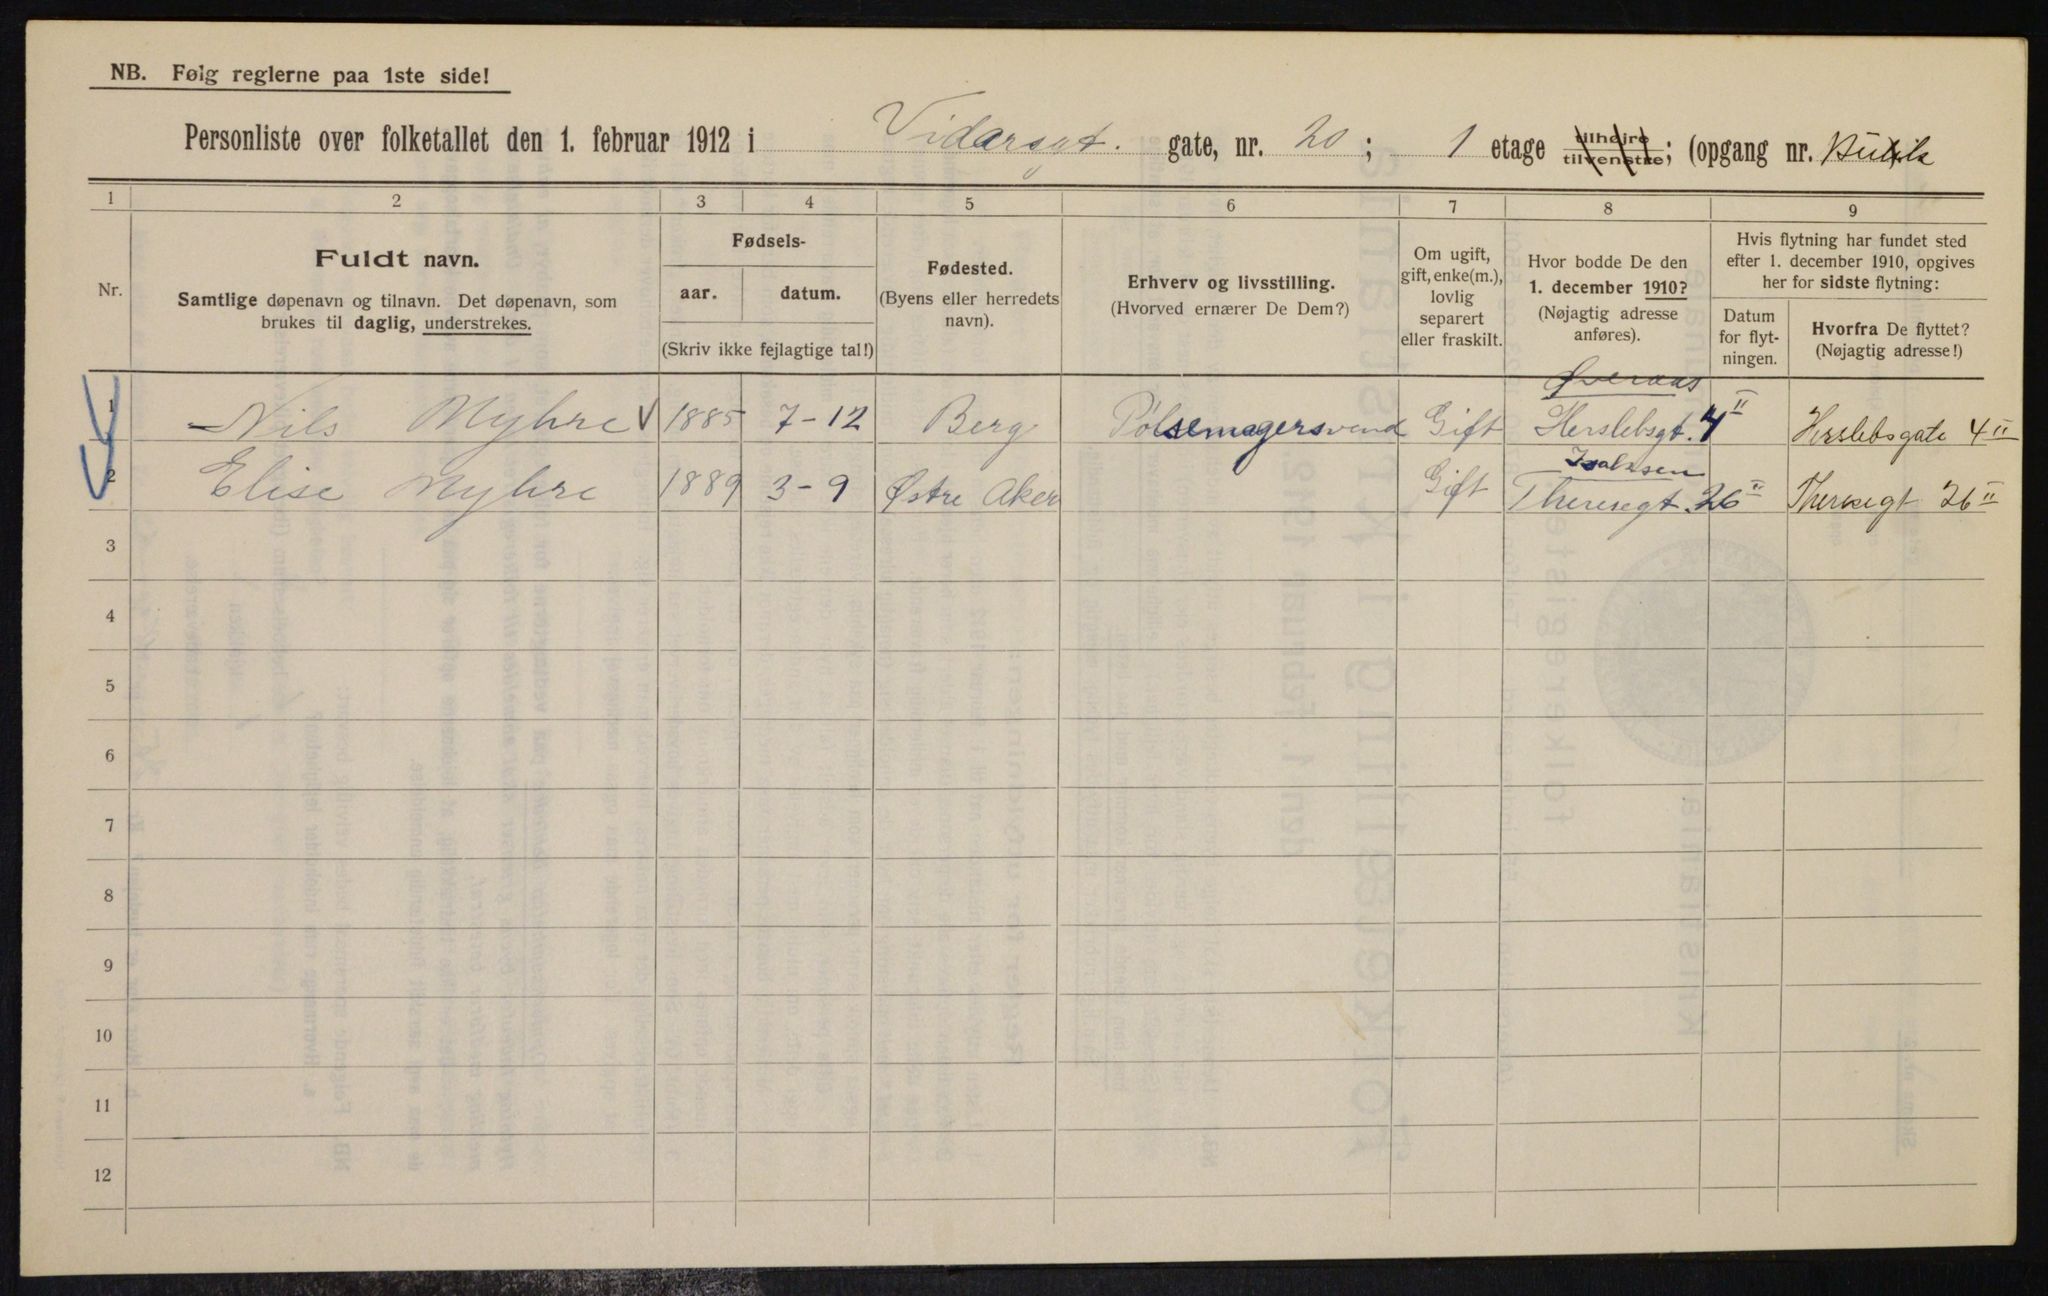 NB. Følg reglerne paa 1ste side!
Personliste over folketallet den 1. februar 1912 i Vidarsgt. gate, nr. 20; 1 etage tilhøjre tilvenstre; (opgang nr. Butik
1 2 3 4 5 6 7 8 9
Nr.
Fuldt navn.
Samtlige døpenavn og tilnavn. Det døpenavn, som
brukes til daglig, understrekes.
Fødsels-
aar. datum.
(Skriv ikke fejlagtige tal!)
Fødested.
(Byens eller herredets
navn).
Erhverv og livsstilling.
(Hvorved ernærer De Dem?)
Om ugift,
gift, enke(m.),
lovlig
separert
eller fraskilt.
Hvor bodde De den
1. december 1910?
(Nøjagtig adresse
anføres).
Hvis flytning har fundet sted
efter 1. december 1910, opgives
her for sidste flytning:
Datum
for flyt-
ningen.
Hvorfra De flyttet?
(Nøjagtig adresse!)
Øveraas
1 Nils Myhre 1885 7-12 Berg Pølsemagersvend Gift Herslebsgt. 4 II Herslebsgate 4 II
Isaksen
2 Elise Myhre 1889 3-9 Østre Aker Gift Theresegt. 26 II Theresegt 26 II
3
4
5
6
7
8
9
10
11
12